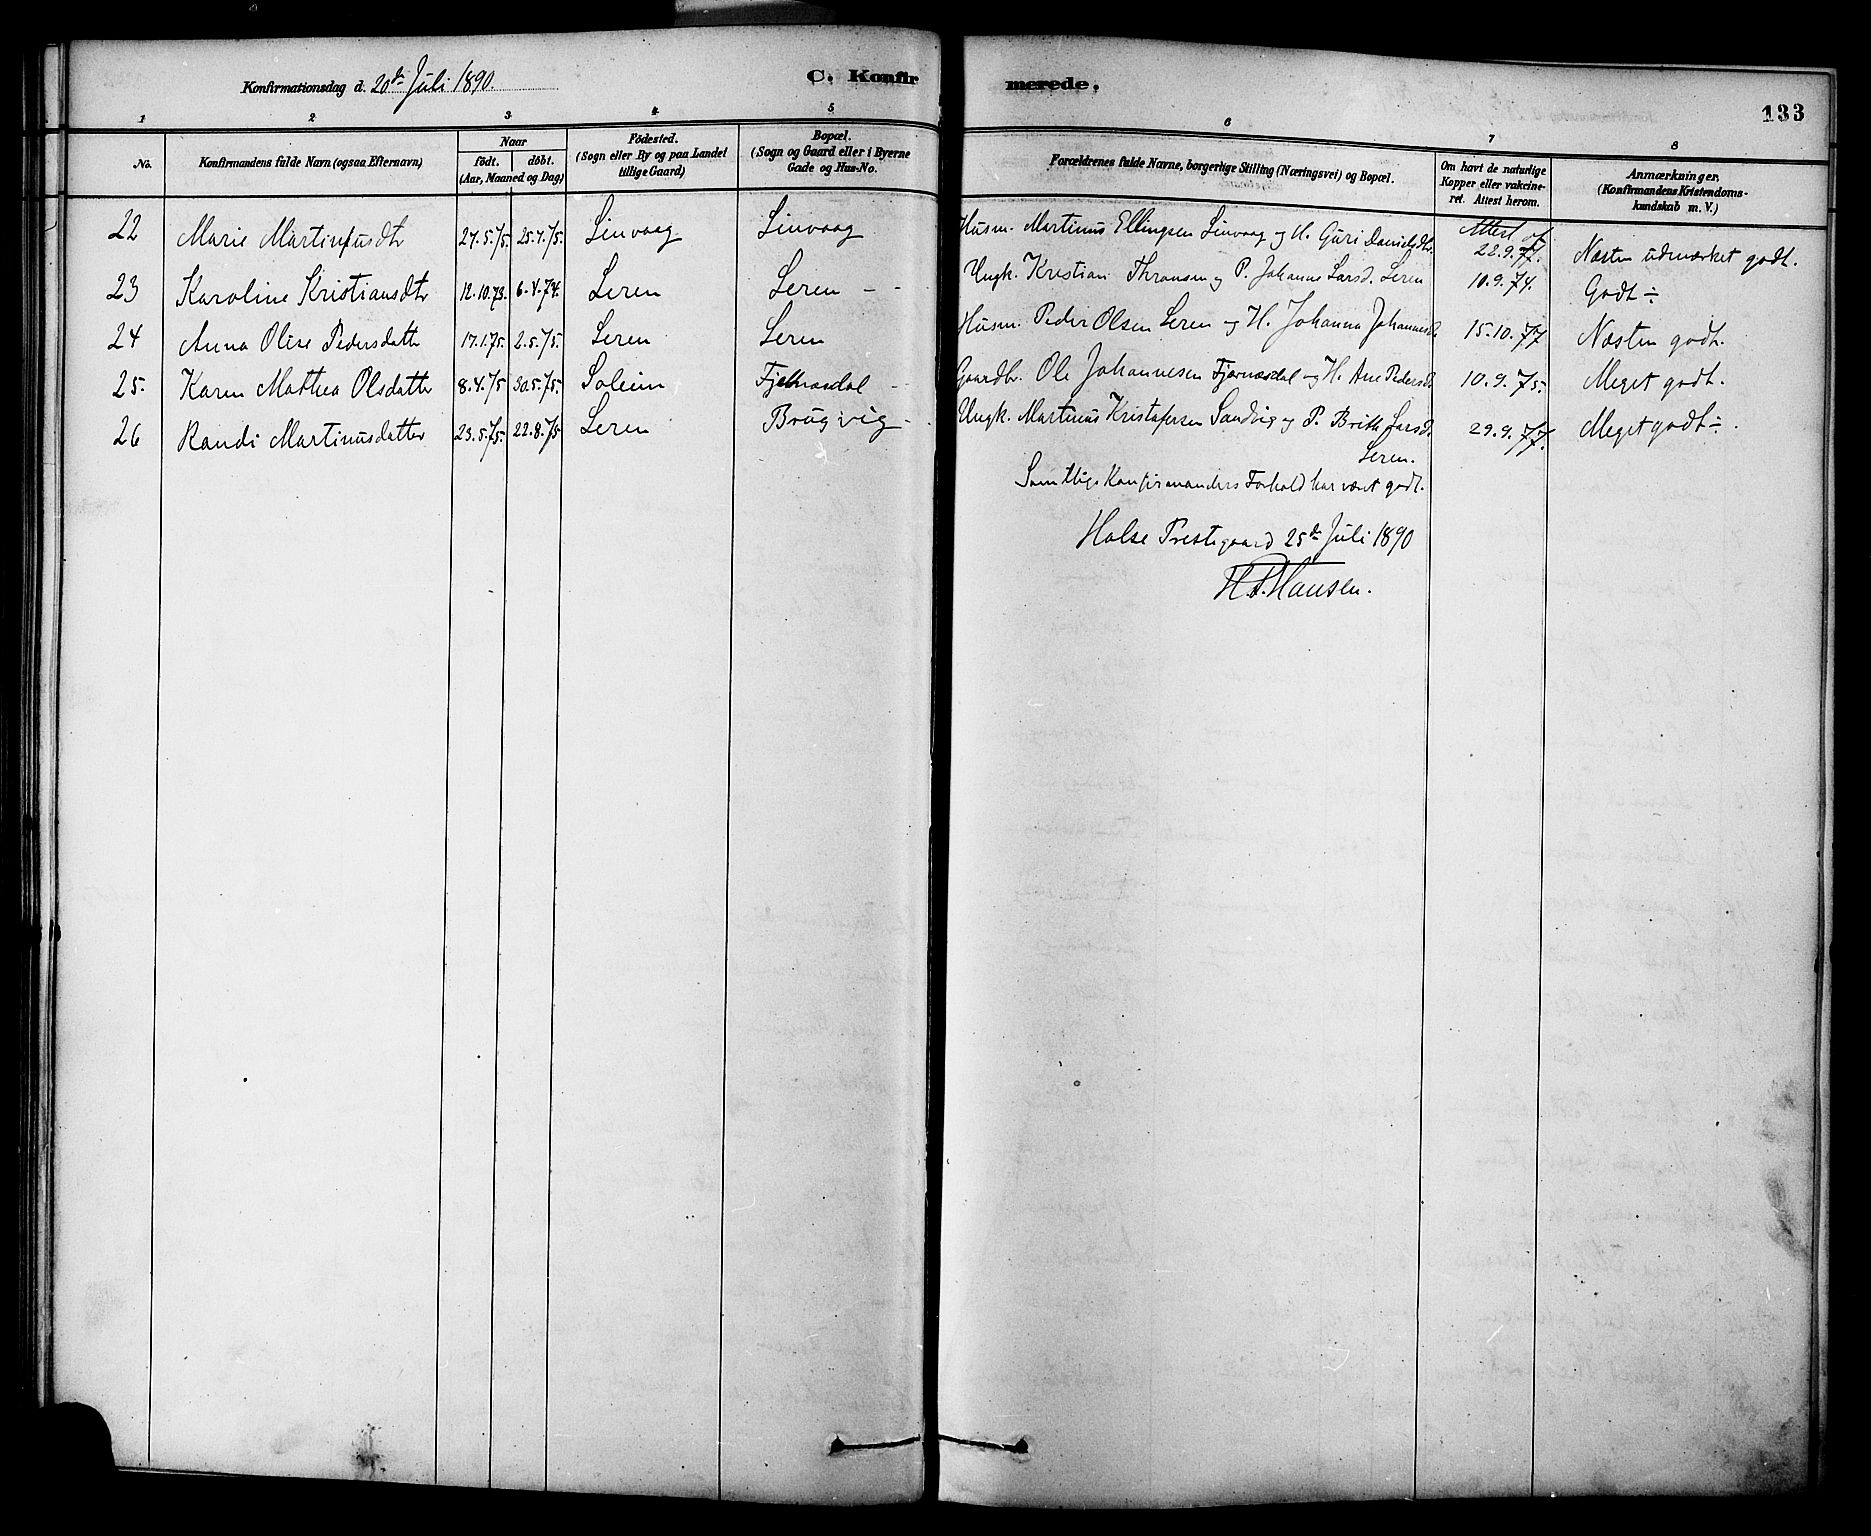 Konfirmationsdag d. 20de Juli 1890.
C. Konfirmerede.
133
1 2 3 4 5 6 7 8
No.
Konfirmandens fulde Navn (ogsaa Efternavn)
Naar
födt. döbt.
(Aar, Maaned og Dag)
Födested.
(Sogn eller By og paa Landet
tillige Gaard)
Bopæl.
(Sogn og Gaard eller i Byerne
Gade og Hus-No.
Forældrenes fulde Navne, borgerlige Stilling (Næringsvei) og Bopæl.
Om havt de naturlige
Kopper eller vakcine-
ret. Attest herom.
Anmærkninger,
(Konfirmandens Kristendoms-
kundskab m. V.)
22 Marie Martinusdtr 27.5.75. 25.7.75. Linvaag Linvaag Husm. Martinus Ellingsen Linvaag og H. Guri Danielsdtr. Attest af 22.9.77. Næsten udmærket godt.
23 Karoline Kristiansdtr 12.10.73. 6.4.74. Leren Leren - - Ungk. Kristian Thronsen og P. Johanna Larsd. Leren 10.9.74. Godt ÷
24 Anna Olise Pedersdatter 17.1.75. 2.5.75. Leren Leren Husm. Peder Olsen Leren og H. Johanna Johannesd. 15.10.77 Næsten godt.
25. Karen Mathea Olsdatter 8.4.75 30.5.75. Soleim Fjelnæsdal - Gaardbr. Ole Johannesen Fjærnæsdal og H. Ane Pedersd. 10.9.75. Meget godt.
26 Randi Martinusdatter 23.5.75. 22.8.75 Leren Brugvig - Ungk. Martinus Kristofersen Sandvig og P. Brith Larsd. 29.9.77. Meget godt ÷.
Leren.
Samtlige Konfirmanders Forhold har været godt.
Halse Prestegaard 25de Juli 1890
H. P. Hansen.